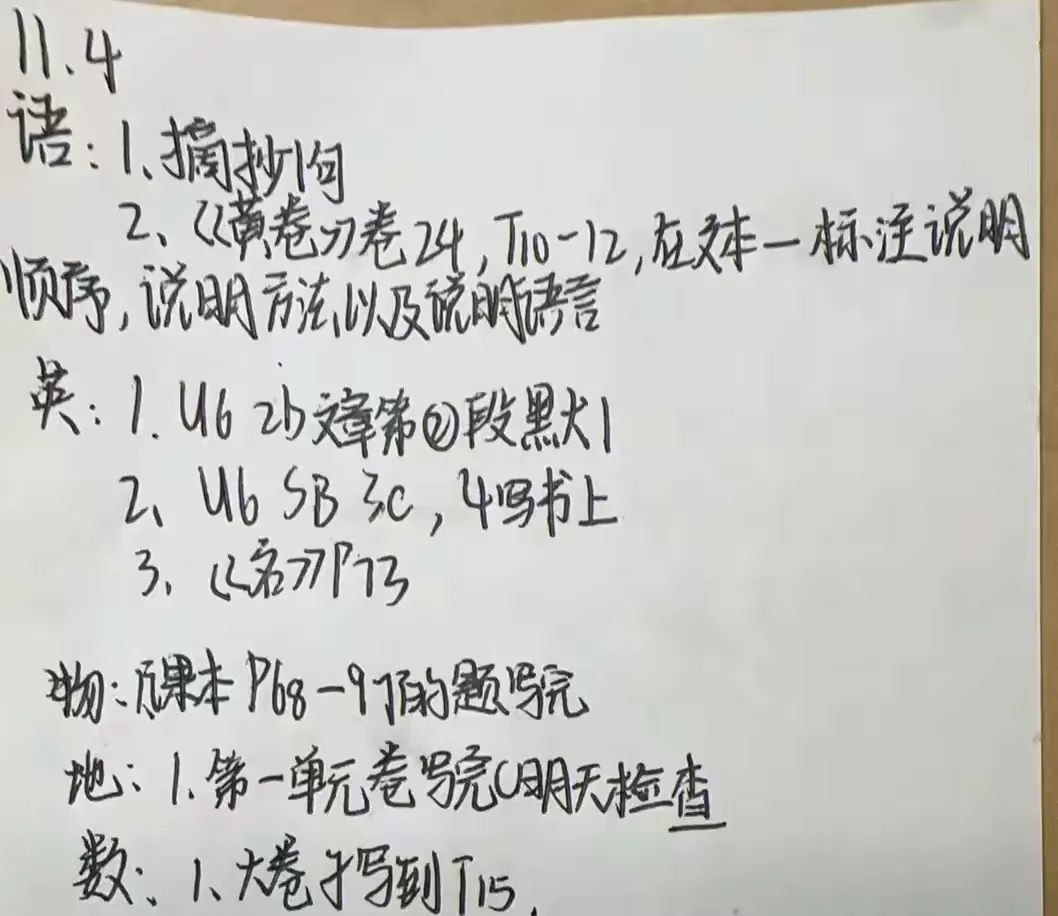 11.4
语：1、摘抄1句
2、《黄卷》卷24，T10-12，在文本一标注说明
顺序，说明方法以及说明语言
英：1. U6 2b文章第②段默1
2、U6 SB 3c，4写书上
3、《名》P73
物：课本P68-97的题写完
地：1.第一单元卷写完(明天检查
数：1、大卷子写到T15.